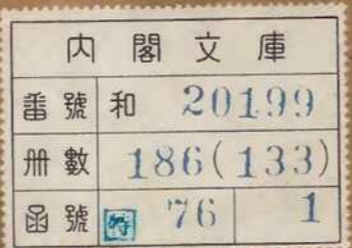 内閣文庫
番號 和 20199
冊數 186(133)
函號 特 76 1